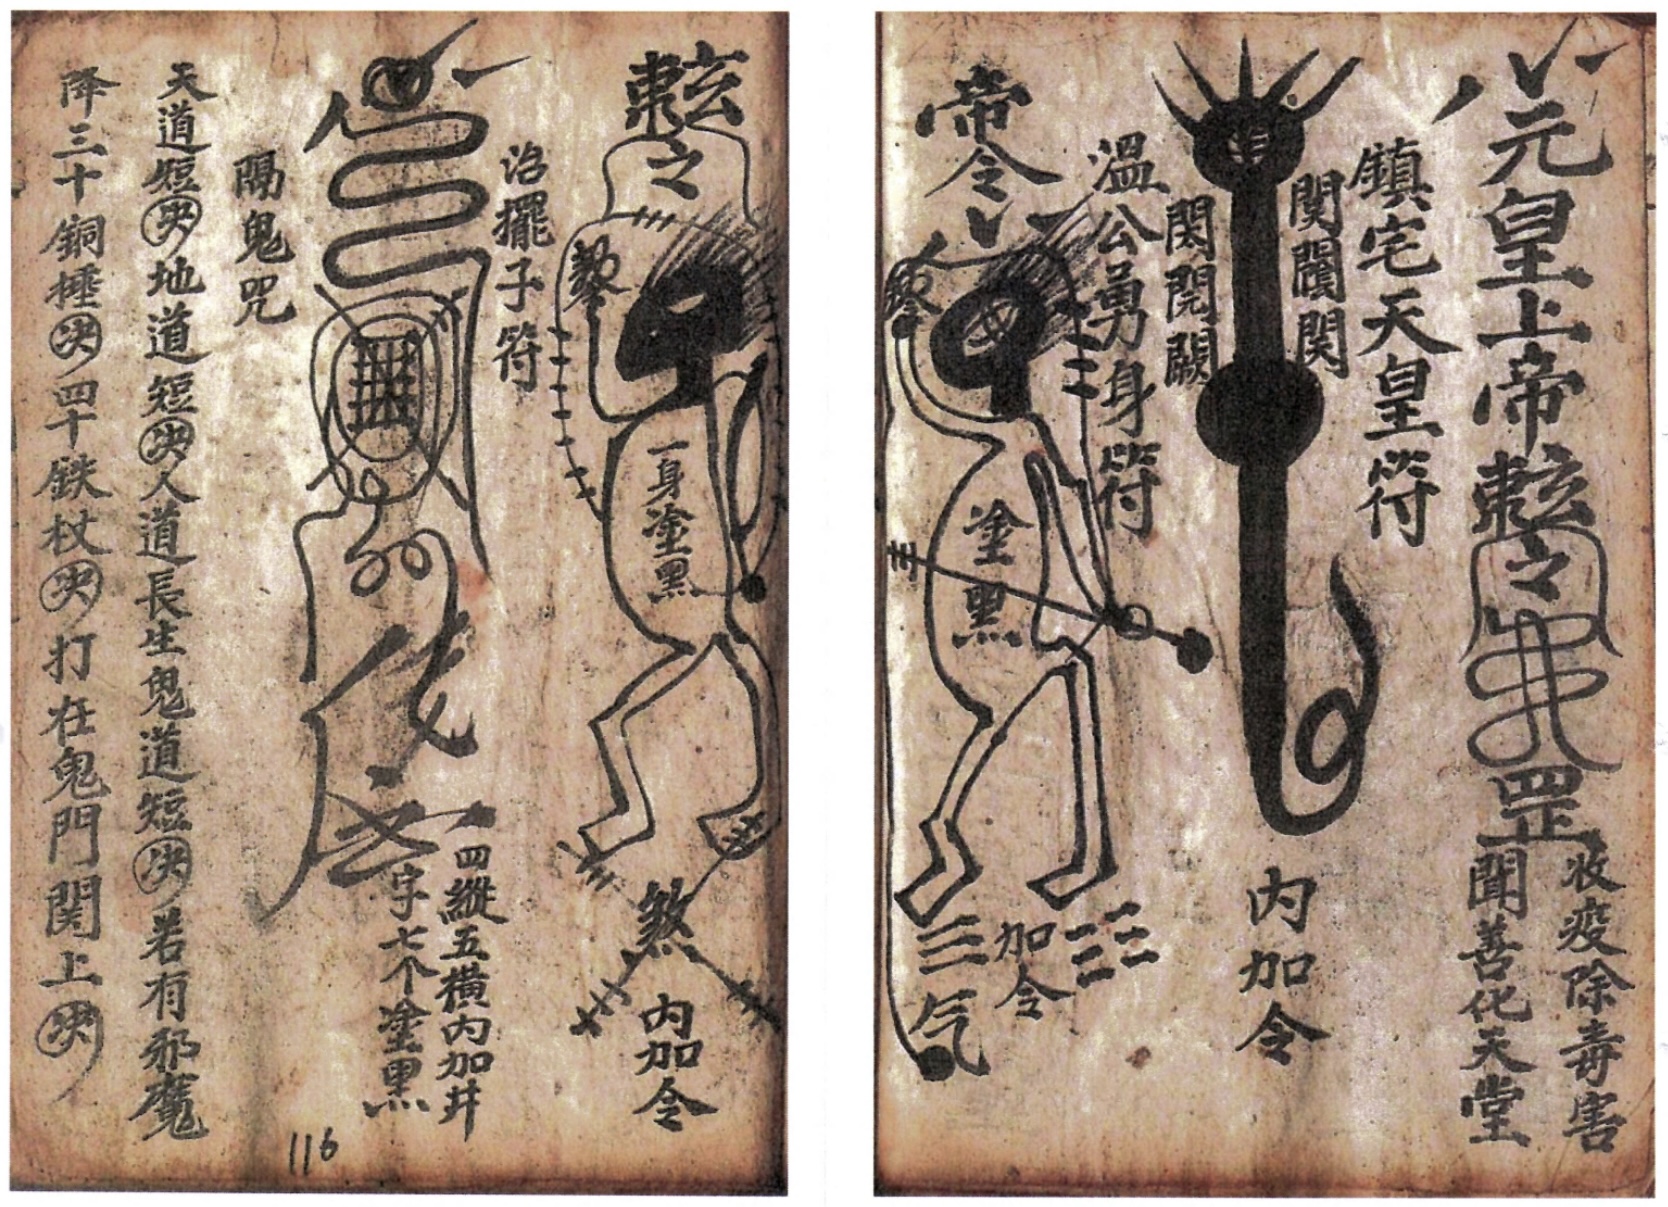 元皇上帝敕之
罡
收疫除毒害
聞善化天堂
鎮宅天皇符
内加令
溫公勇身符
帝令
塗黑
加令
三气
敕之
一身塗黑
煞
内加令
治擺子符
四縱五橫内加井
字七个塗黑
隔鬼咒
天道短决地道短决人道長生鬼道短决若有邪魔
降三十銅捶决四十鉄杖决打在鬼門関上决
116